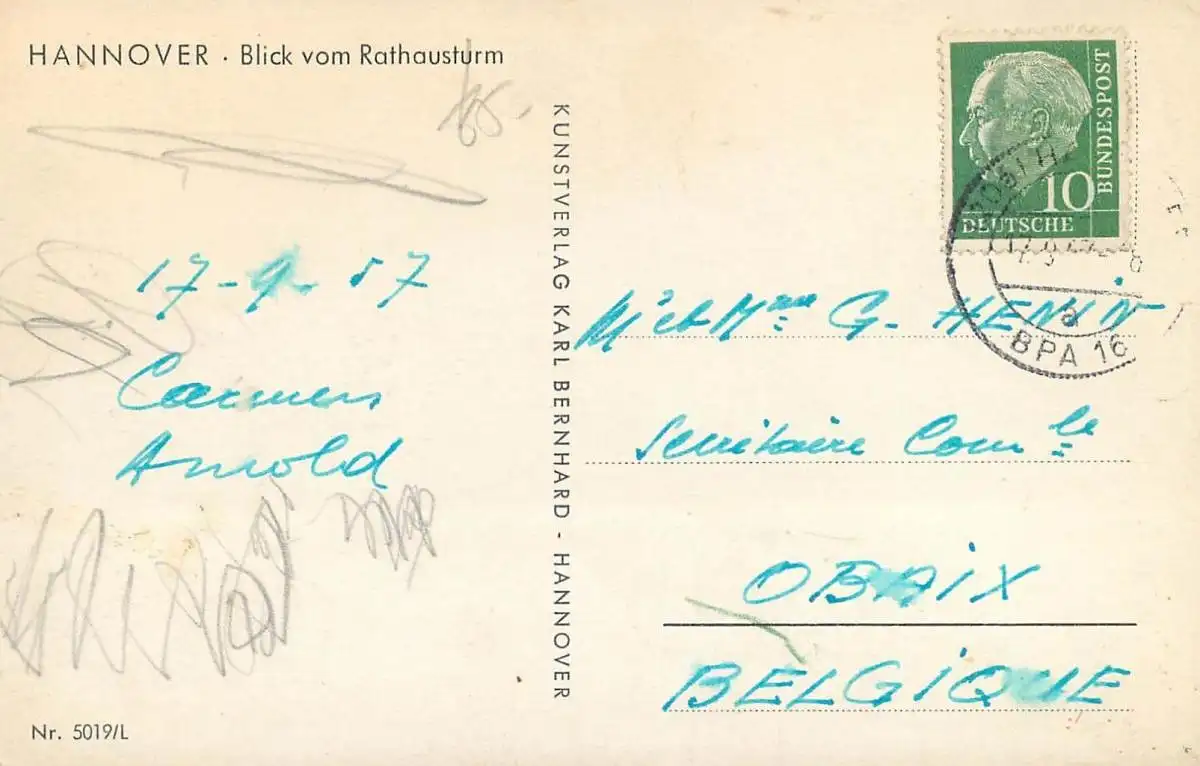 HANNOVER · Blick vom Rathausturm
KUNSTVERLAG KARL BERNHARD - HANNOVER
BUNDESPOST
10
DEUTSCHE
a
BPA 16
17-9-57
Carmen
Arnold
M et Mme G. HENIN
Secrétaire Comle
OBAIX
BELGIQUE
Nr. 5019/L